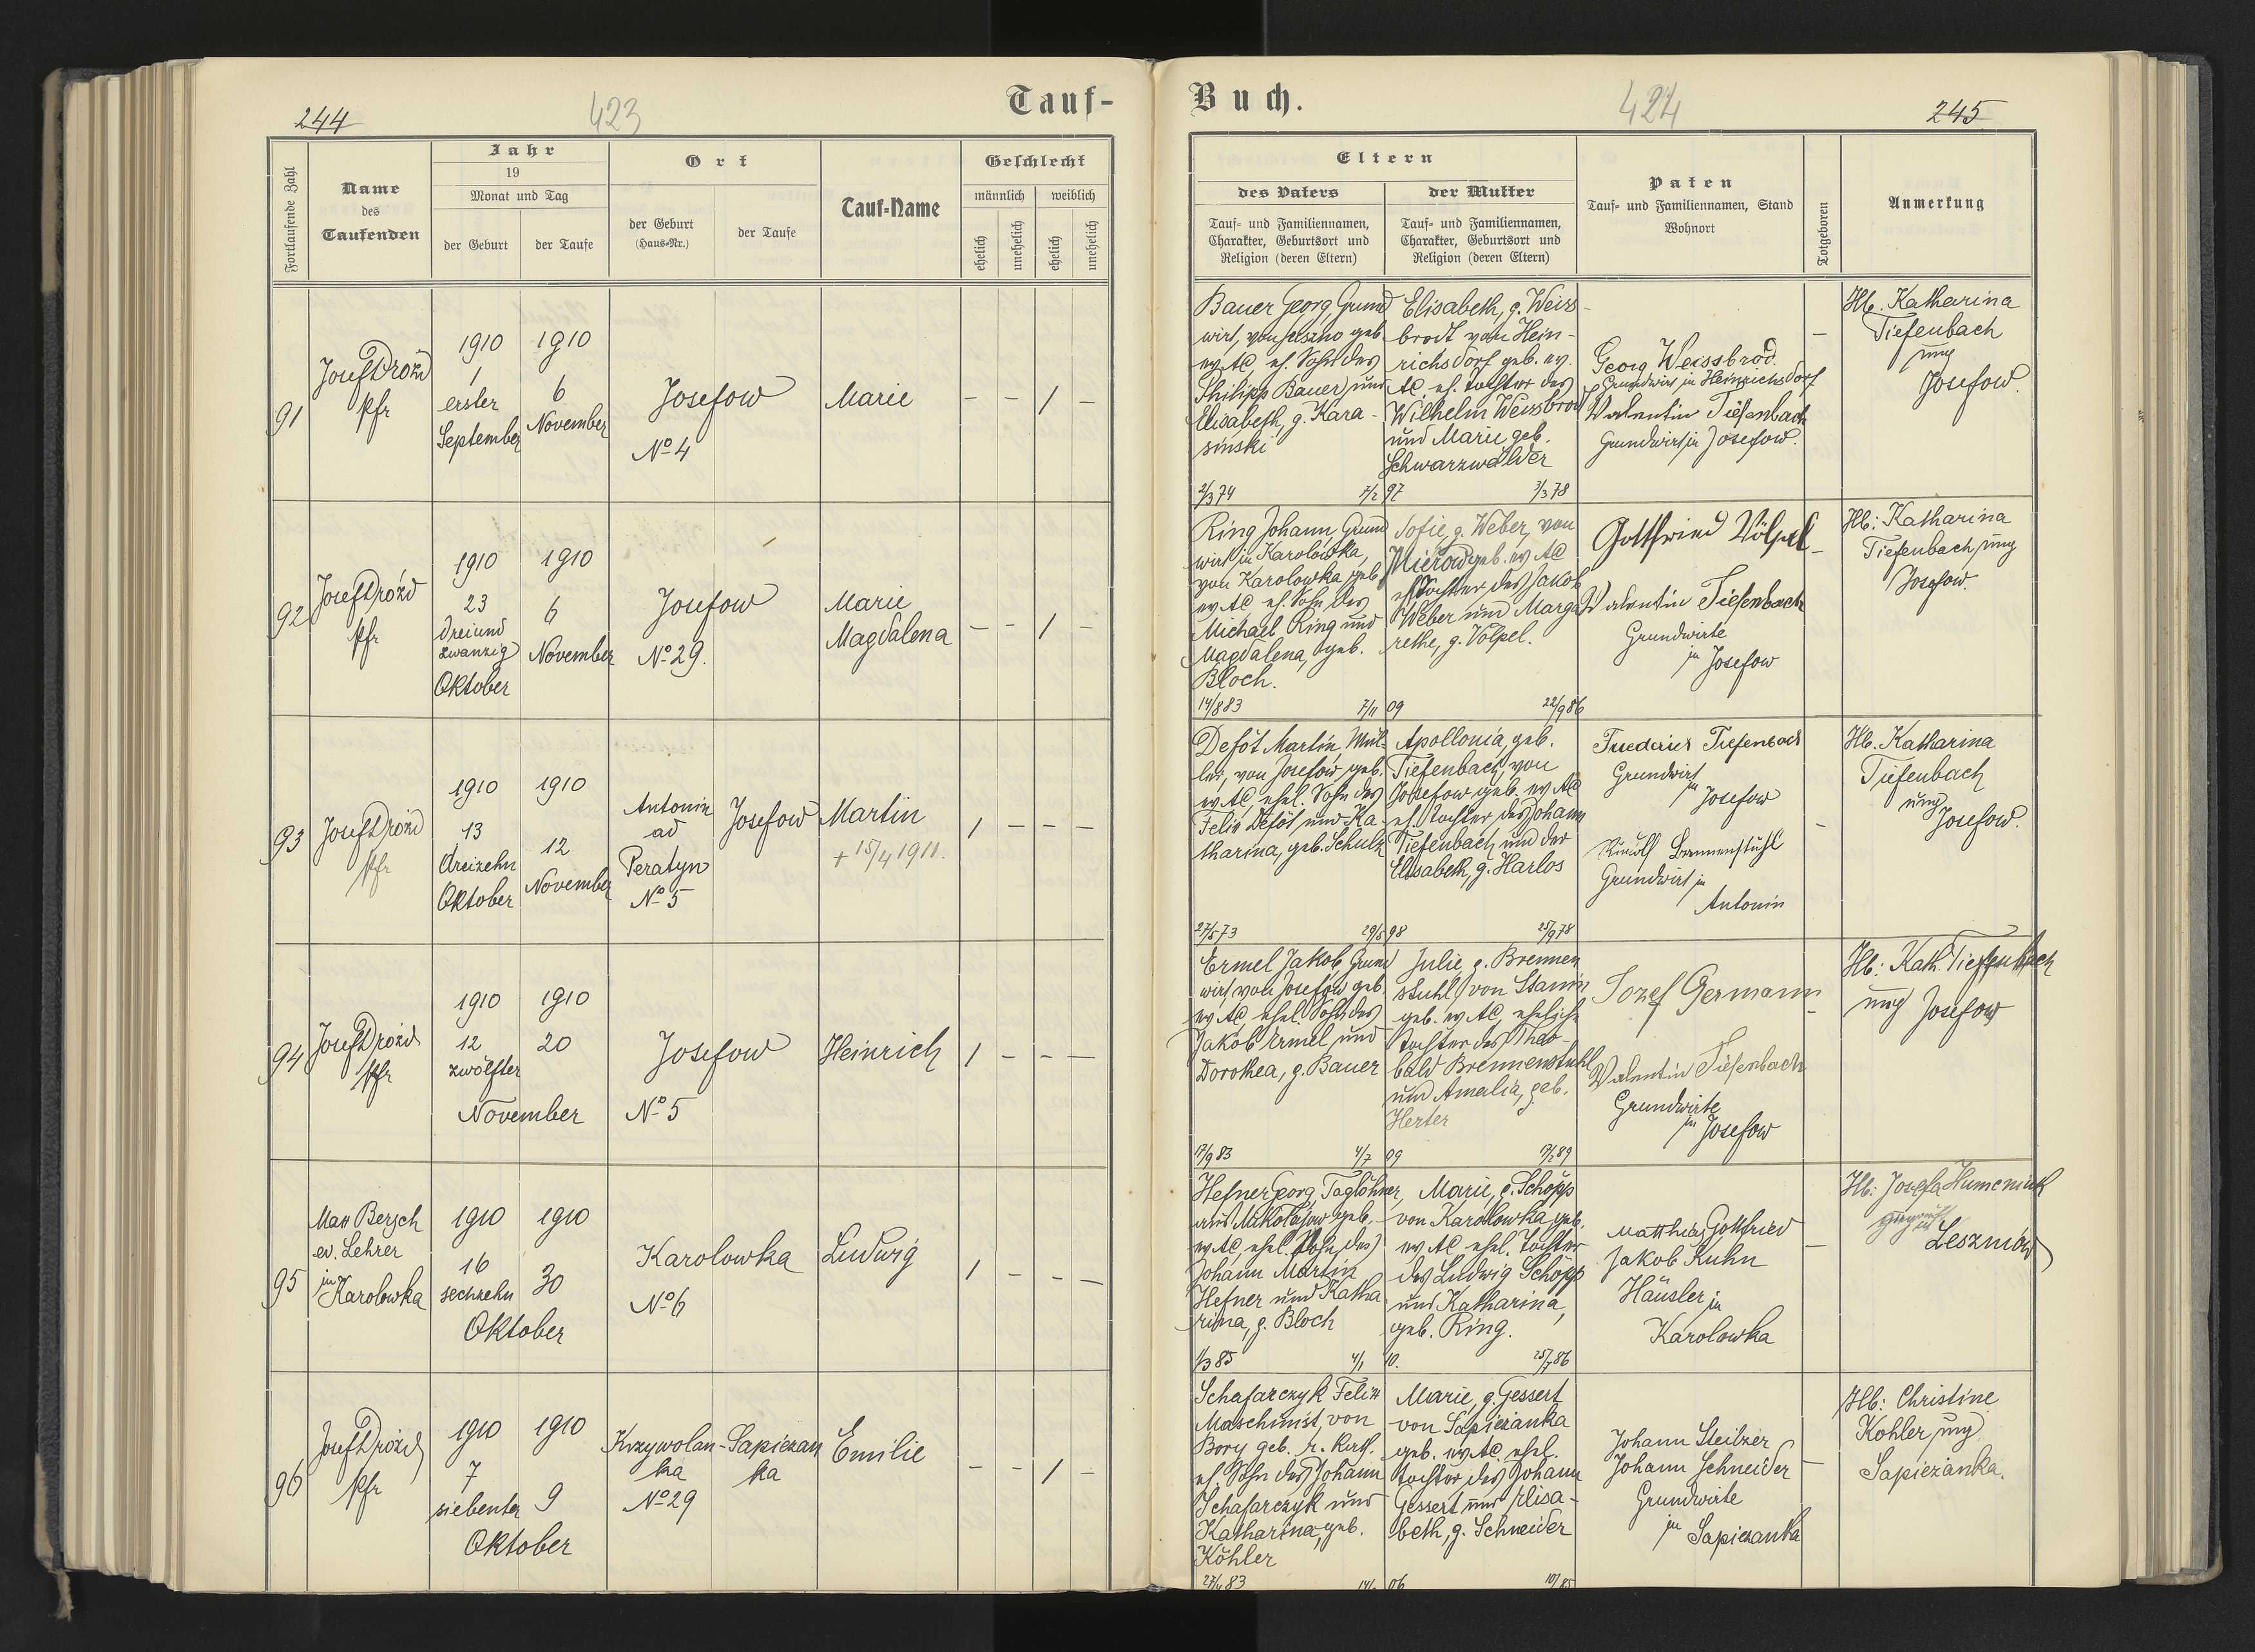 244
423
Tauf-
Fortlaufende Zahl
Name
des
Taufenden
Jahr
19
Monat und Tag
der Geburt
der Taufe
Ort
der Geburt
(Haus-Nr.)
der Taufe
Tauf-Name
Geschlecht
männlich
weiblich
ehelich
unehelich
ehelich
unehelich
91
Josef Drozd
Pfr
1910
1
erster
September
1910
6
November
Josefow
No 4
Marie
— — / —
92
Josef Drozd
Pfr
1910
23
dreiund
zwanzig
Oktober
1910
6
November
Josefow
No 29.
Marie
Magdalena
— — / —
93
Josef Drozd
Pfr
1910
13
dreizehn
Oktober
1910
12
November
Antonin
ad
Peratyn
No 5
Josefow
Martin
+ 15/4 1911.
/ — — —
94
Josef Drozd
Pfr
1910
12
zwölfter
1910
20
November
Josefow
No 5
Heinrich
/ — — —
95
Matt Bersch
ev. Lehrer
in
Karolowka
1910
16
sechzehn
1910
30
Oktober
Karolowka
No 6
Ludwig
/ — — —
96
Josef Drozd
Pfr
1910
7
siebenter
1910
9
Oktober
Krzywolan-
ka
No 29
Sapiezan
ka
Emilie
— — / —
Buch.
424
245
Eltern
des Vaters
Tauf- und Familiennamen,
Charakter, Geburtsort und
Religion (deren Eltern)
der Mutter
Tauf- und Familiennamen,
Charakter, Geburtsort und
Religion (deren Eltern)
Paten
Tauf- und Familiennamen, Stand
Wohnort
Totgeboren
Anmerkung
Bauer Georg, Grund
wirt, von geb.
ev AC, eh. Sohn des
Philipp Bauer und
Elisabeth, g. Kara-
sinski
2/3 74
7/2 97
3/3 78
Elisabeth, g. Weiss-
brodt von Hein-
richsdorf geb. ev.
AC, eh. Tochter des
Wilhelm Weissbrod
und Marie geb.
Schwarzwälder
Georg Weissbrod
Grundwirt in Heinrichsdorf
Valentin Tiefenbach
Grundwirt in Josefow.
—
Hb. Katharina
Tiefenbach
ung
Josefow.
Ring Johann, Grund
wirt in Karolowka,
von Karolowka geb.
ev AC, eh. Sohn des
Michael Ring und
Magdalena, geb.
Bloch.
14/8 83
7/11 09
22/9 86
Sofie, g. Weber, von
Mierow geb. ev AC
eh Tochter des Jakob
Weber und Marga
rethe, g. Völpel.
Gottfried Völpel
Valentin Tiefenbach
Grundwirte
in Josefow
—
Hb: Katharina
Tiefenbach ung
Josefow.
Defôt Martin, Mül-
ler, von Josefow, geb.
ev AC, ehel. Sohn des
Felix Defôt und Ka-
tharina, geb. Schulz
27/5 73
29/5 98
25/9 78
Apollonia, geb.
Tiefenbach, von
Josefow geb. ev AC
eh. Tochter des Johann
Tiefenbach und der
Elisabeth, g. Harlos
Friedrich Tiefenbach
Grundwirt
in Josefow
Rudolf Brennenstuhl
Grundwirt in
Antonin
—
Hb. Katharina
Tiefenbach
ung
Josefow.
Ermel Jakob Grund
wirt von Josefow geb
ev AC, ehel. Sohn des
Jakob Ermel und
Dorothea, g. Bauer
17/9 83
4/7 09
Julie, g. Brennen
stuhl, von Stanin
geb. ev AC, eheliche
Tochter des Theo-
bald Brennenstuhl
und Amalia, geb.
Herter
Jozef Germann
Valentin Tiefenbach
Grundwirte
in Josefow
—
Hb: Kath. Tiefenbach
ung Josefow
Hefner Georg, Taglöhner,
aus Mikolajow geb.
ev AC, ehel. Sohn des
Johann Martin
Hefner und Katha
rina, g. Bloch
1/3 85
4/1 10.
25/7 86
Marie, g. Schöpp
von Karolowka, geb.
ev AC ehel. Tochter
des Ludwig Schöpp
und Katharina,
geb. Ring.
Matthias Gottfried
Jakob Kuhn
Häusler in
Karolowka
—
Hb: Josefa Humeniuk
geprüft
in
Leszniów
Schafarczyk Felix
Maschinist, von
Bory geb. r. kath.
eh. Sohn des Johann
Schafarczyk und
Katharina, geb.
Köhler
Marie, g. Gessert
von Sapiezanka
geb. ev AC, ehel.
Tochter des Johann
Gessert und Elisa-
beth, g. Schneider
Johann Steibzer
Johann Schneider
Grundwirte
in Sapiezanka
—
Hb: Christine
Kohler ung
Sapiezanka.